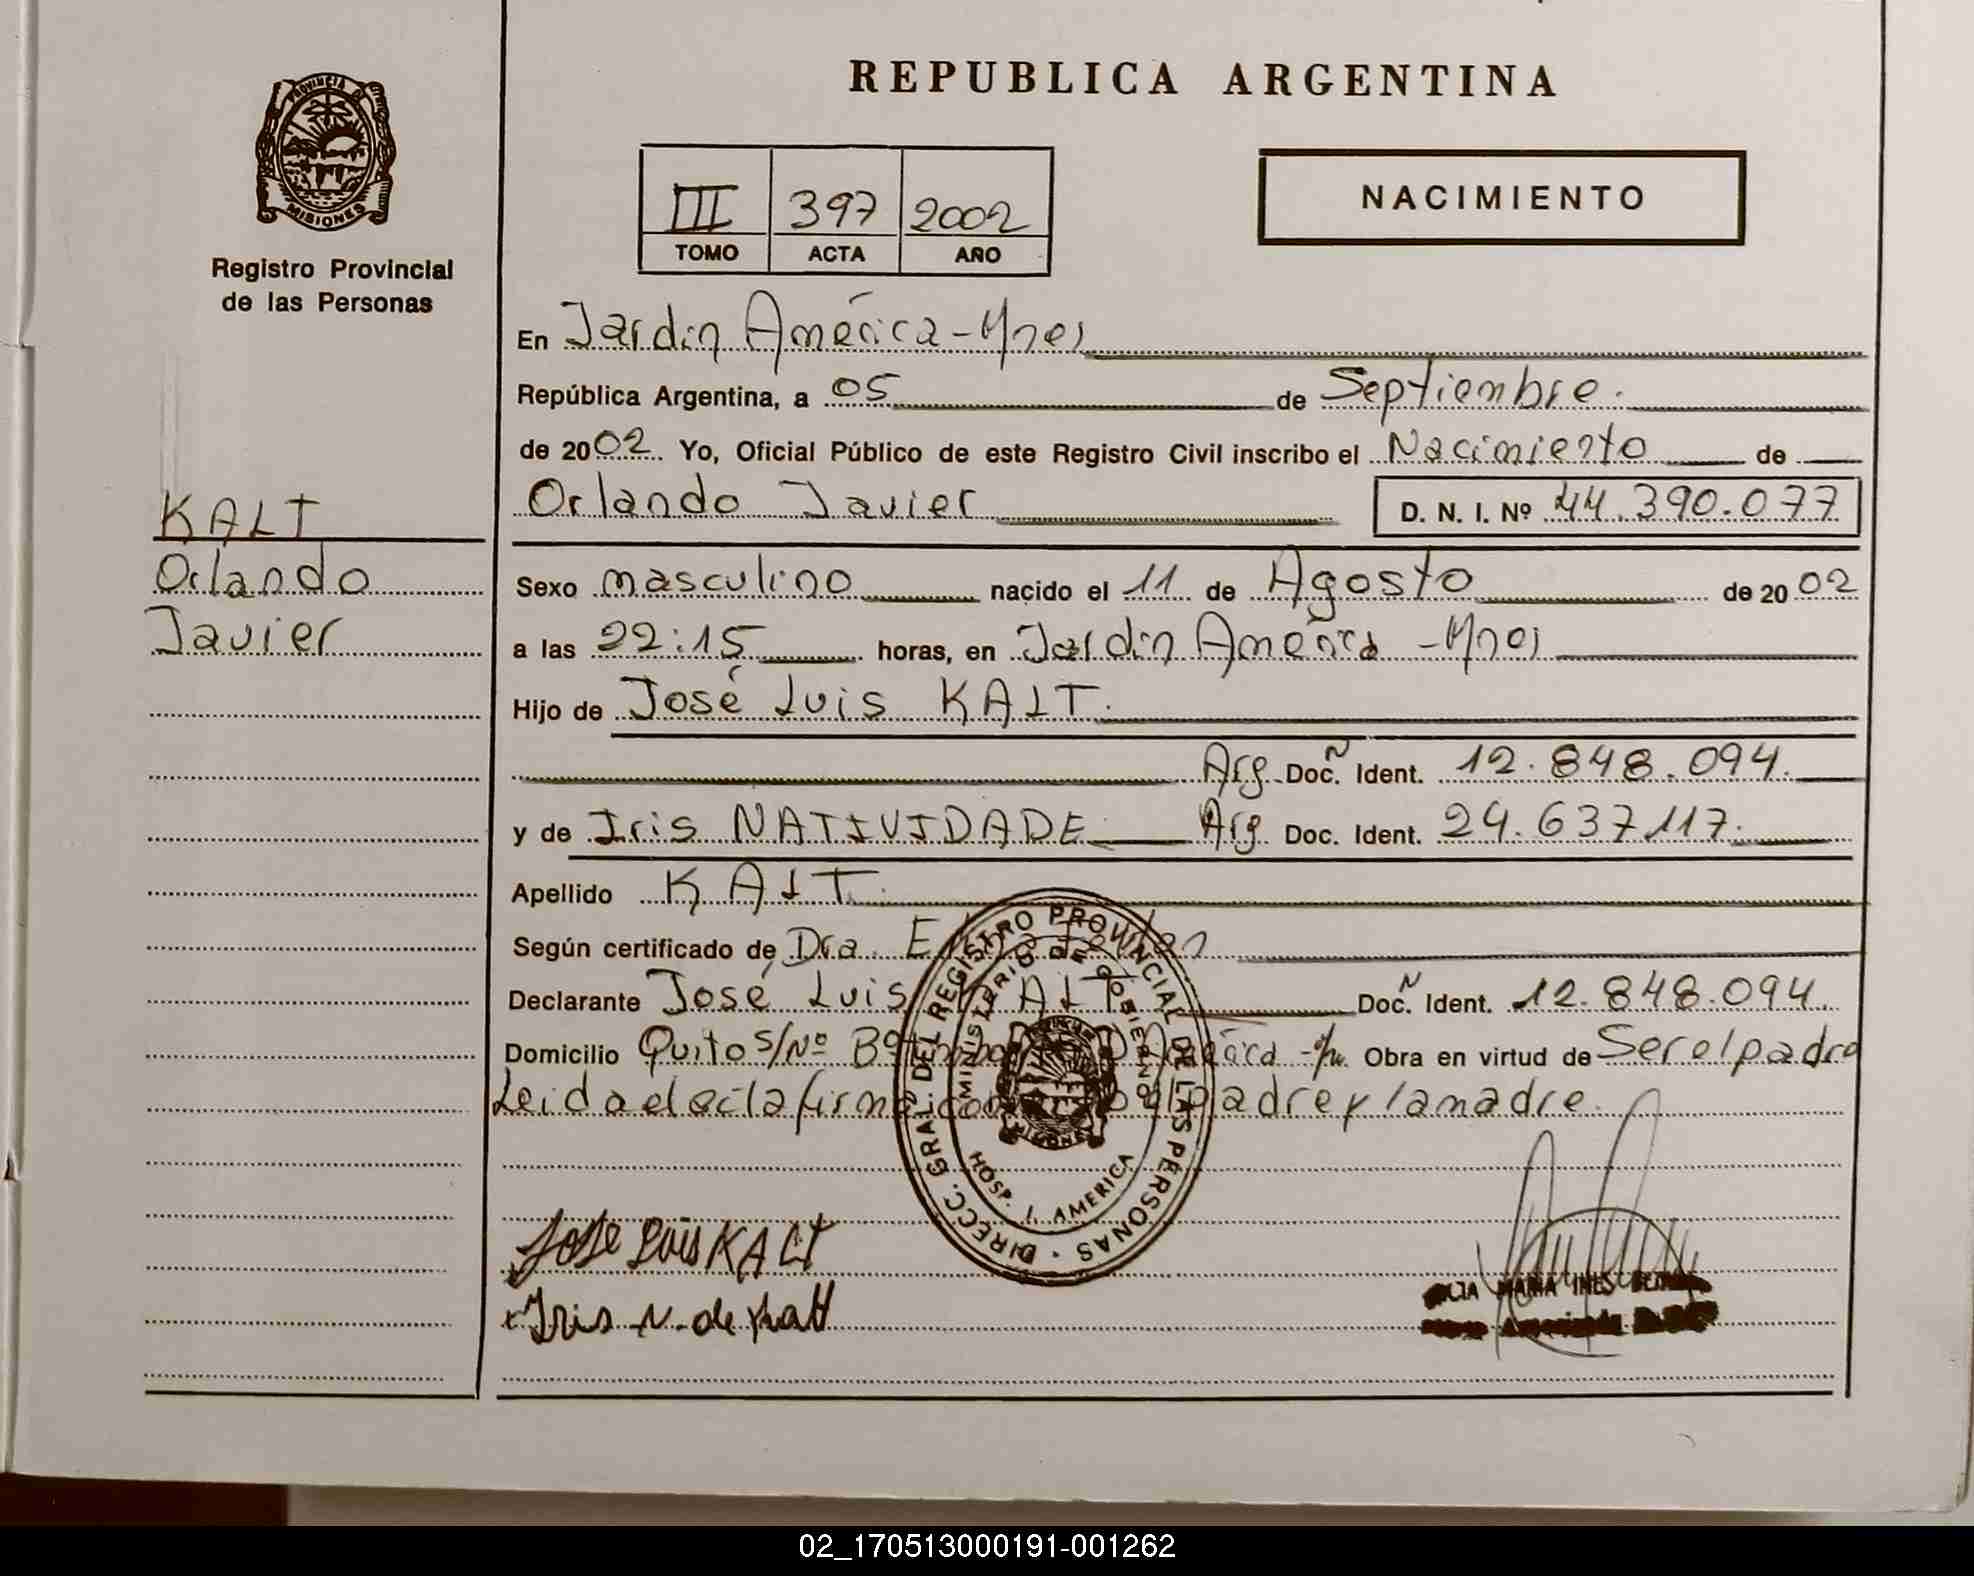 REPUBLICA ARGENTINA
PROVINCIA DE
MISIONES
Registro Provincial
de las Personas
III 397 2002
TOMO ACTA AÑO
NACIMIENTO
En Jardin América - Mnes
República Argentina, a 05 de Septiembre.
de 2002. Yo, Oficial Público de este Registro Civil inscribo el Nacimiento de
Orlando Javier D. N. I. Nº 44.390.077
KALT
Orlando
Javier
Sexo masculino nacido el 11 de Agosto de 2002
a las 22:15 horas, en Jardin América - Mnes
Hijo de José Luis KALT.
Arg. Doc. Ident. 12.848.094.
y de Iris NATIVIDADE Arg. Doc. Ident. 24.637.117.
Apellido KALT.
Según certificado de Dra.
Declarante José Luis KALT Doc. Ident. 12.848.094.
Domicilio Quito s/Nº Bº América Obra en virtud de Ser el padre
Leida el acta firma el padre y la madre.
DIRECC. GRAL. DEL REGISTRO PROVINCIAL DE LAS PERSONAS
MINISTERIO DE GOBIERNO
MISIONES
HOSP. J. AMERICA
José Luis KALT
Iris N. de Kalt
MARIA INES
02_170513000191-001262